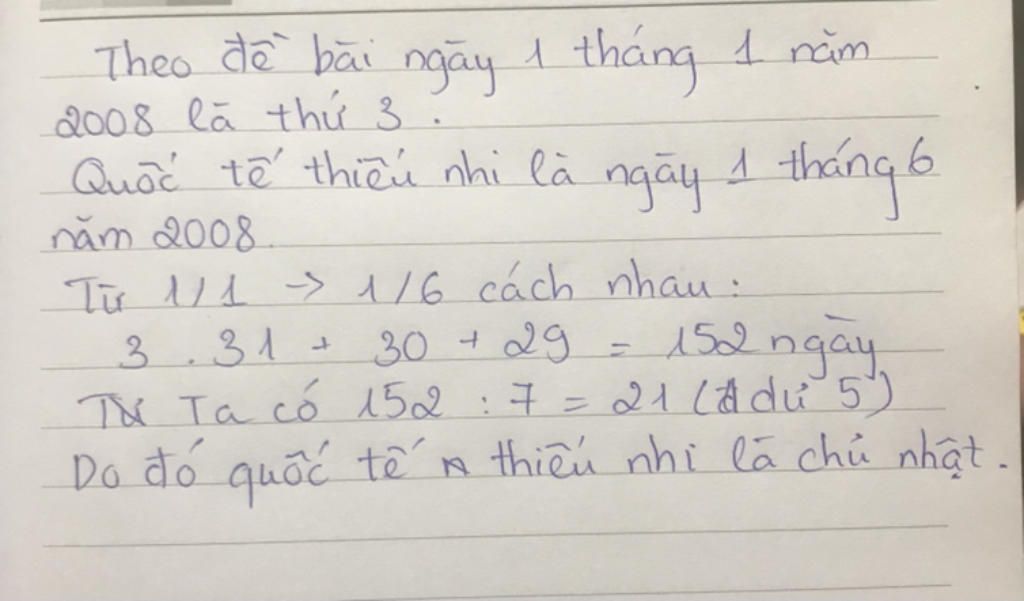 Theo đề bài ngày 1 tháng 1 năm
2008 là thứ 3.
Quốc tế thiếu nhi là ngày 1 tháng 6
năm 2008
Từ 1/1 -> 1/6 cách nhau:
3 . 31 + 30 + 29 = 152 ngày
Ta có 152 : 7 = 21 (dư 5)
Do đó quốc tế thiếu nhi là chủ nhật.